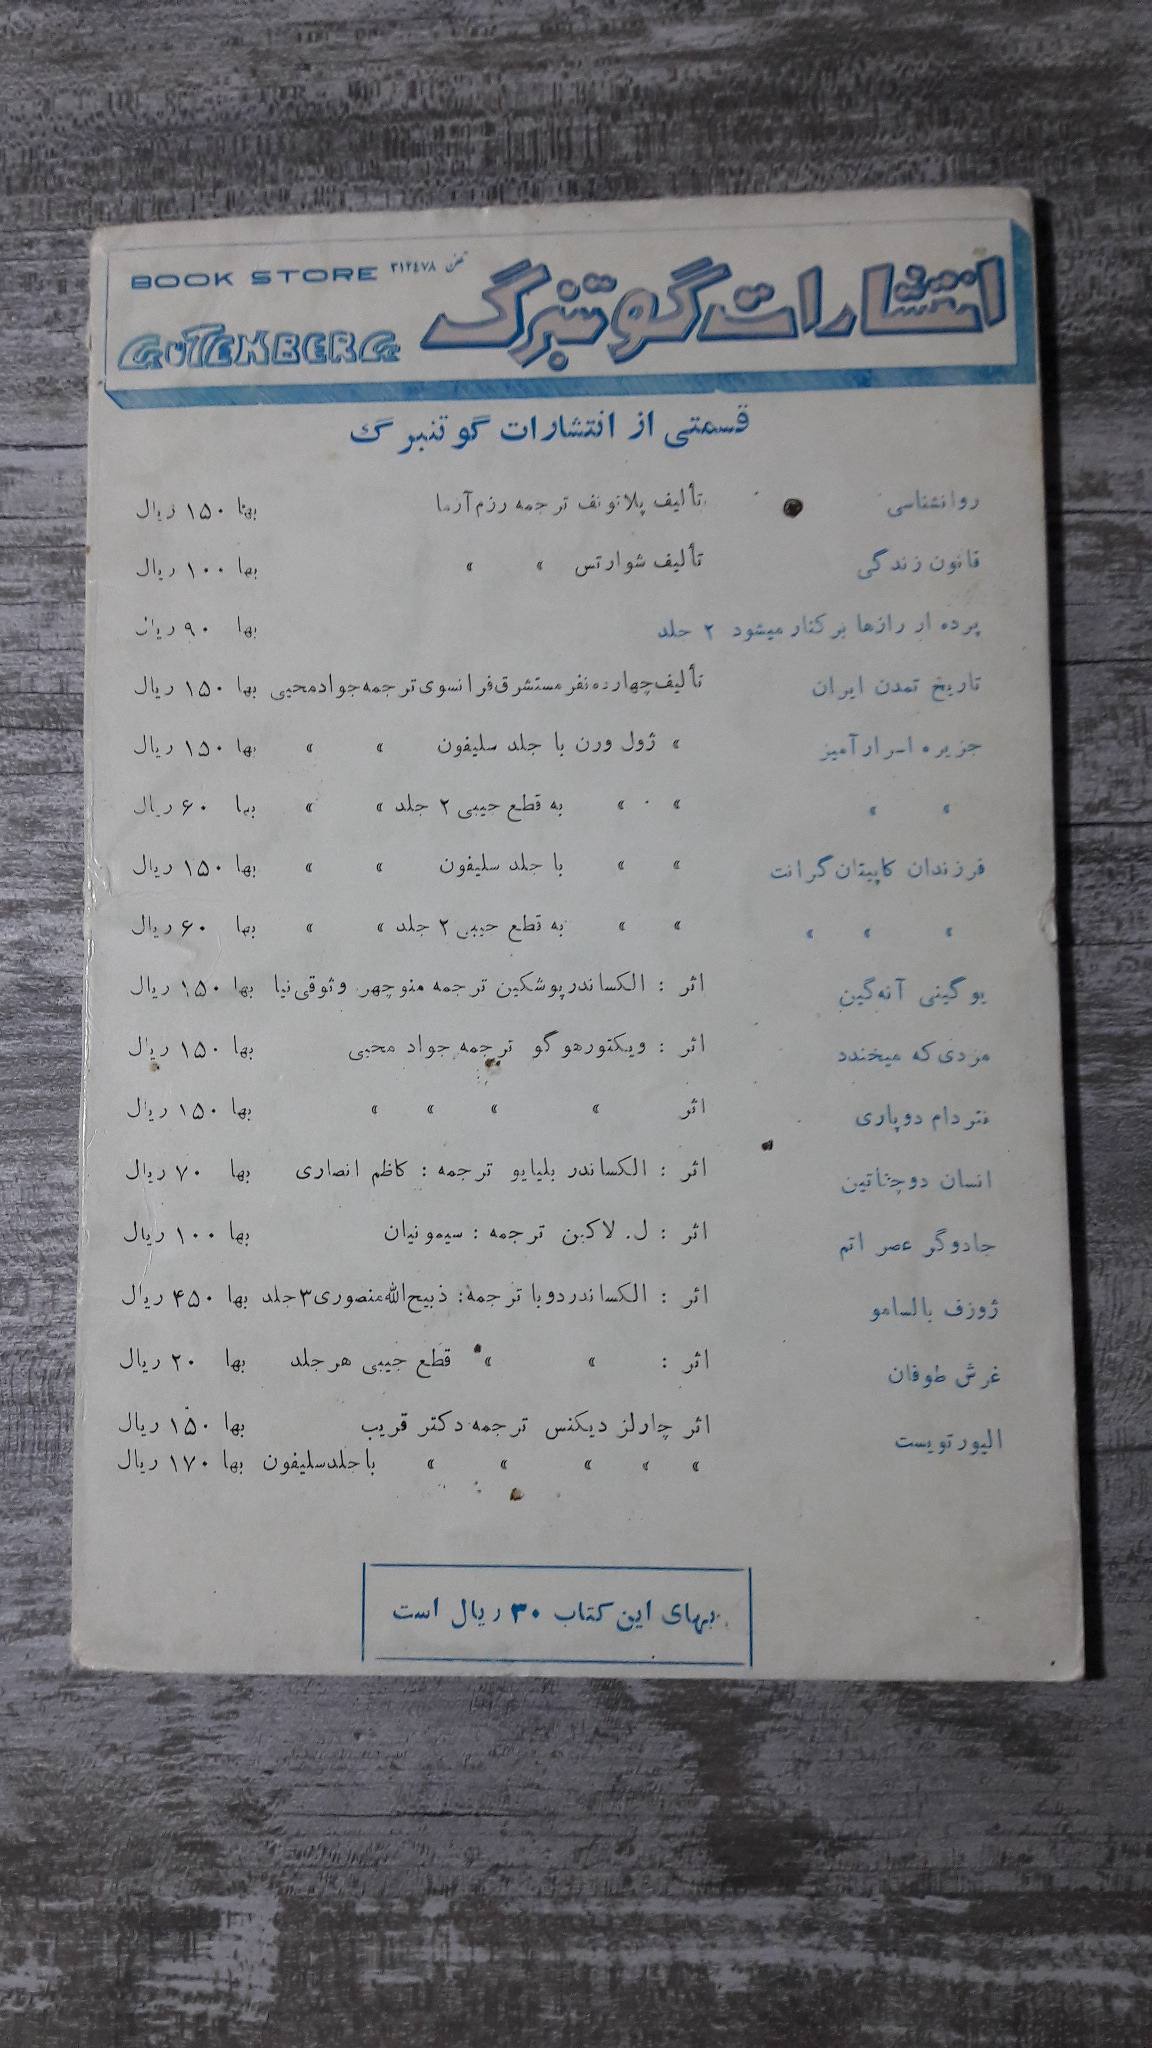 انتشارات گوتنبرگ
تلفن ۳۱۲٤۷۸ BOOK STORE
GUTENBERG
قسمتی از انتشارات گوتنبرگ
روانشناسی تألیف پلاتونف ترجمه رزم‌آزما بها ۱۵۰ ریال
قانون زندگی تألیف شوارتس » » بها ۱۰۰ ریال
پرده از رازها برکنار میشود ۲ جلد بها ۹۰ ریال
تاریخ تمدن ایران تألیف چهارده نفر مستشرق فرانسوی ترجمه جواد محیی بها ۱۵۰ ریال
جزیره اسرارآمیز » ژول ورن با جلد سلیفون » » بها ۱۵۰ ریال
» » » » به قطع جیبی ۲ جلد » » بها ۶۰ ریال
فرزندان کاپیتان گرانت » » با جلد سلیفون » » بها ۱۵۰ ریال
» » » » » به قطع جیبی ۲ جلد » » بها ۶۰ ریال
یوگینی آنه‌گین اثر : الکساندر پوشکین ترجمه منوچهر وثوقی‌نیا بها ۱۵۰ ریال
مردی که میخندد اثر : ویکتورهوگو ترجمه جواد محیی بها ۱۵۰ ریال
نتردام دوپاری اثر » » » » بها ۱۵۰ ریال
انسان دوچناتین اثر : الکساندر بلیایو ترجمه : کاظم انصاری بها ۷۰ ریال
جادوگر عصر اتم اثر : ل. لاکبن ترجمه : سیمونیان بها ۱۰۰ ریال
ژوزف بالسامو اثر : الکساندردوبا ترجمه: ذبیح‌الله منصوری ۳ جلد بها ۴۵۰ ریال
غرش طوفان اثر : » » قطع جیبی هر جلد بها ۲۰ ریال
الیور تویست اثر چارلز دیکنس ترجمه دکتر قریب بها ۱۵۰ ریال
» » » » » با جلد سلیفون بها ۱۷۰ ریال
بهای این کتاب ۳۰ ریال است